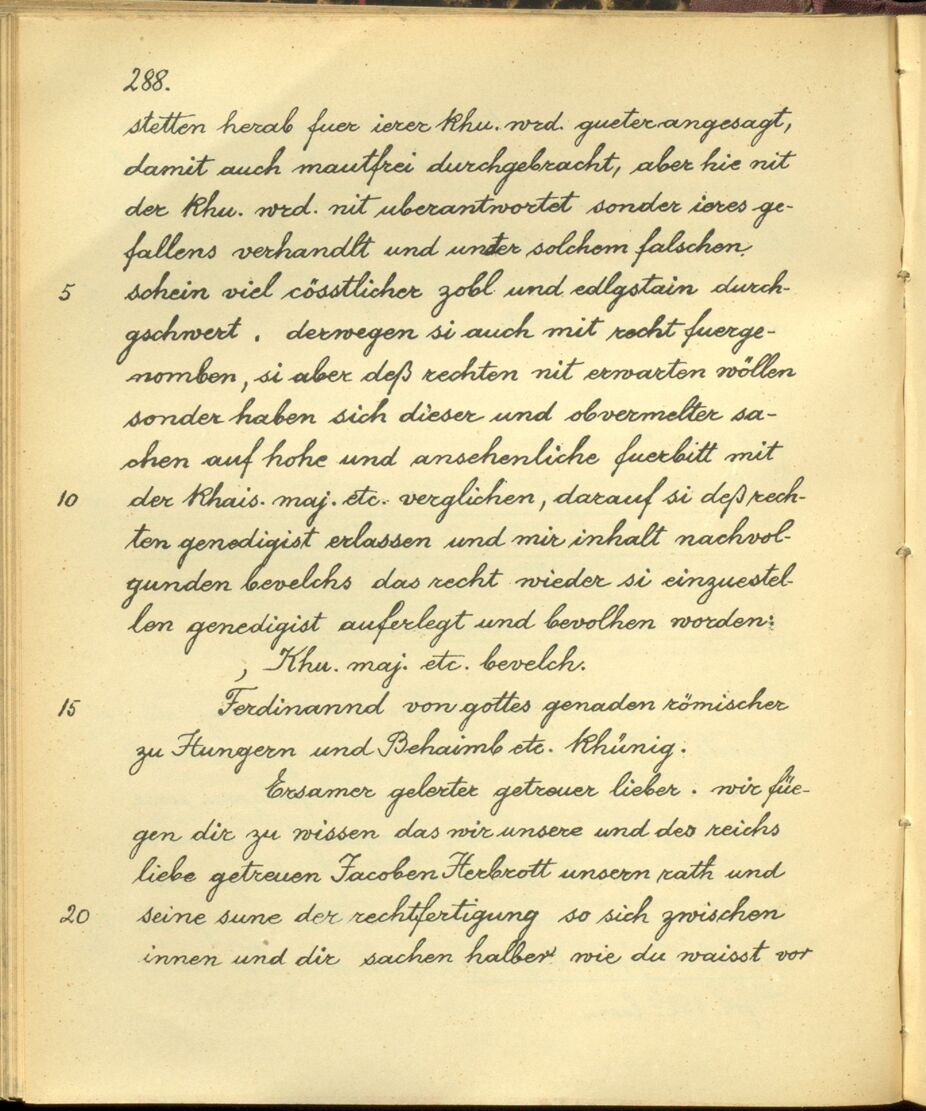 288.
stetten herab fuer ierer Khu. wrd. gueter angesagt,
damit auch mautfrei durchgebracht, aber hie nit
der Khu. wrd. nit uberantwortet sonder ieres ge-
fallens verhandlt und unter solchem falschen
5 schein viel cösstlicher zobl und edlgstain durch-
gschwert. derwegen si auch mit recht fuerge-
nomben, si aber deß rechten nit erwarten wöllen
sonder haben sich dieser und obvermelter sa-
chen auf hohe und ansehenliche fuerbitt mit
10 der Khais. maj. etc. verglichen, darauf si deß rech-
ten genedigist erlassen und mir inhalt nachvol-
gunden bevelchs das recht wieder si einzuestel-
len genedigist auferlegt und bevolhen worden:
, Khu. maj. etc. bevelch.
15 Ferdinannd von gottes genaden römischer
zu Hungern und Behaimb etc. Khünig.
Ersamer gelerter getreuer lieber. wir füe-
gen dir zu wissen das wir unsere und des reichs
liebe getreuen Jacoben Herbrott unsern rath und
20 seine sune der rechtfertigung so sich zwischen
innen und dir sachen halber wie du waisst vor